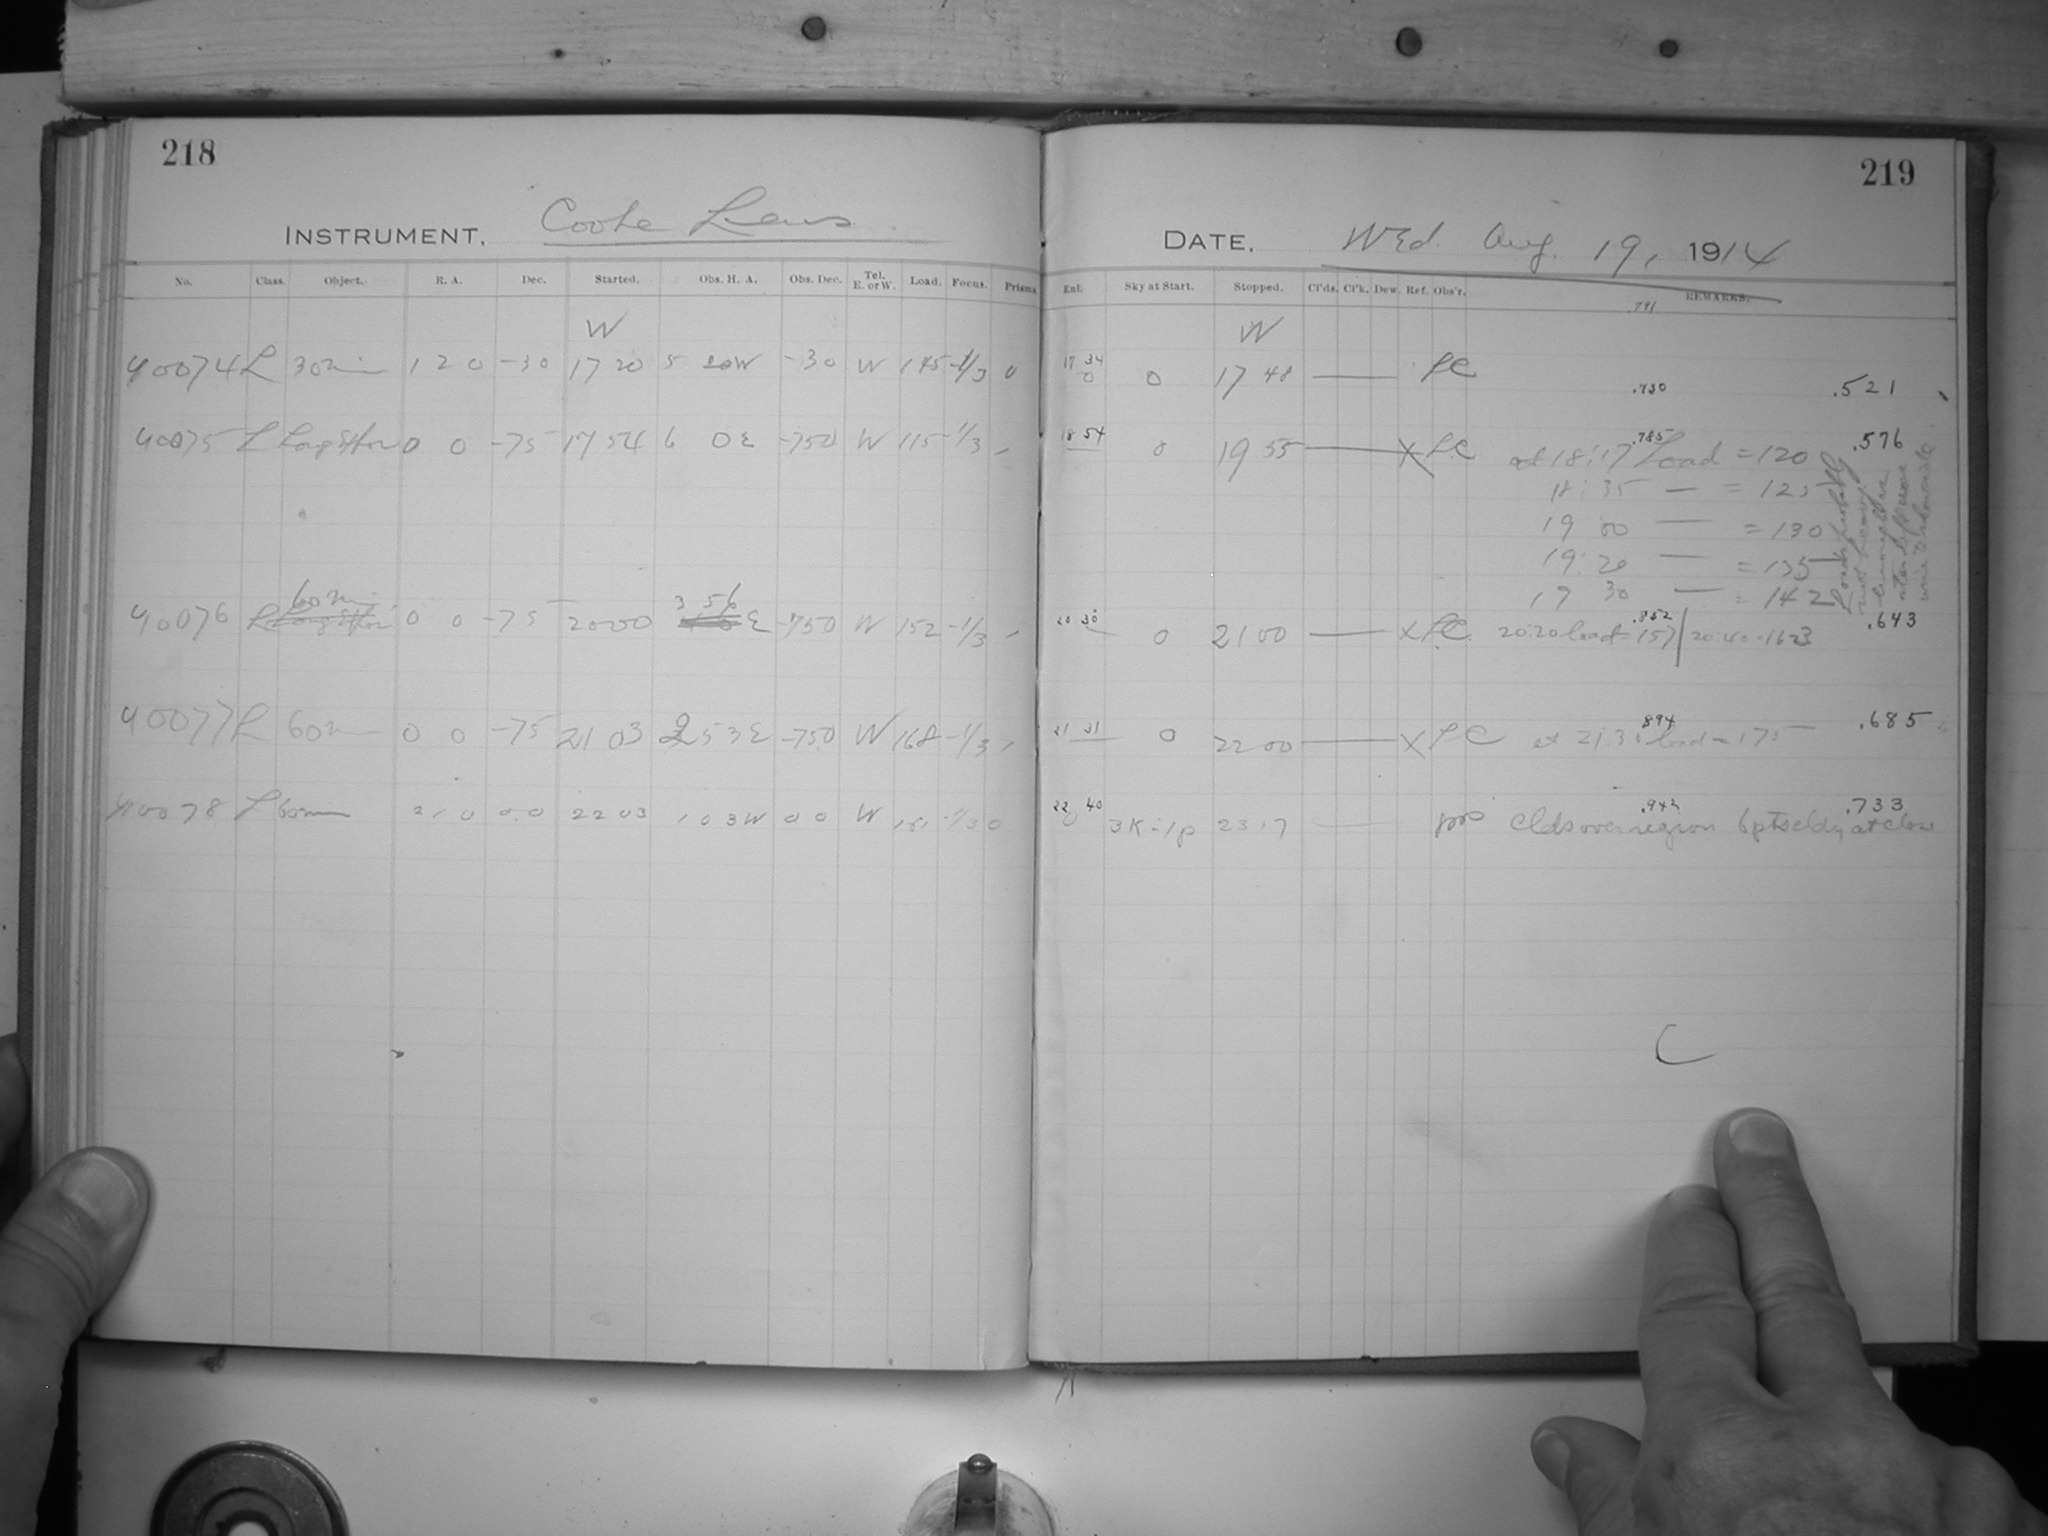 218
219
INSTRUMENT. Cooke Lens
DATE. Wed. Aug. 19, 1914
No. Class. Object. R. A. Dec. Started. Obs. H. A. Obs. Dec. Tel. E. or W. Load. Focus. Prisms.
Ent. Sky at Start. Stopped. Cl'ds. Cl'k. Dew. Ref. Obs'r. REMARKS.
.791
W
W
40074 L 30m 1 20 -30 17 20 5 20W -30 W 145 -1/3 0
17 34 0 0 17 48 .730 .521
40075 L 0 0 -75 17 54 6 0 E -750 W 115 -1/3
18 54 0 19 55 X .785 at 18:17 Load = 120 .576
18:35 — = 125
19 00 — = 130
19:20 — = 135
19 30 — = 142
40076 L 60m 0 0 -75 20 00 3 56 E -750 W 152 -1/3
20 30 0 21 00 X .852 20:20 load=157 / 20:40 .643
40077 L 60m 0 0 -75 21 03 2 53 E -75.0 W 168 -1/3
21 31 0 22 00 X .894 at 21:31 load = 175 .685
40078 L 60m 2 1 0 0.0 22 03 1 03W 0 0 W 181 -1/3 0
22 40 0 23 17 Clds over region .733 at close
C